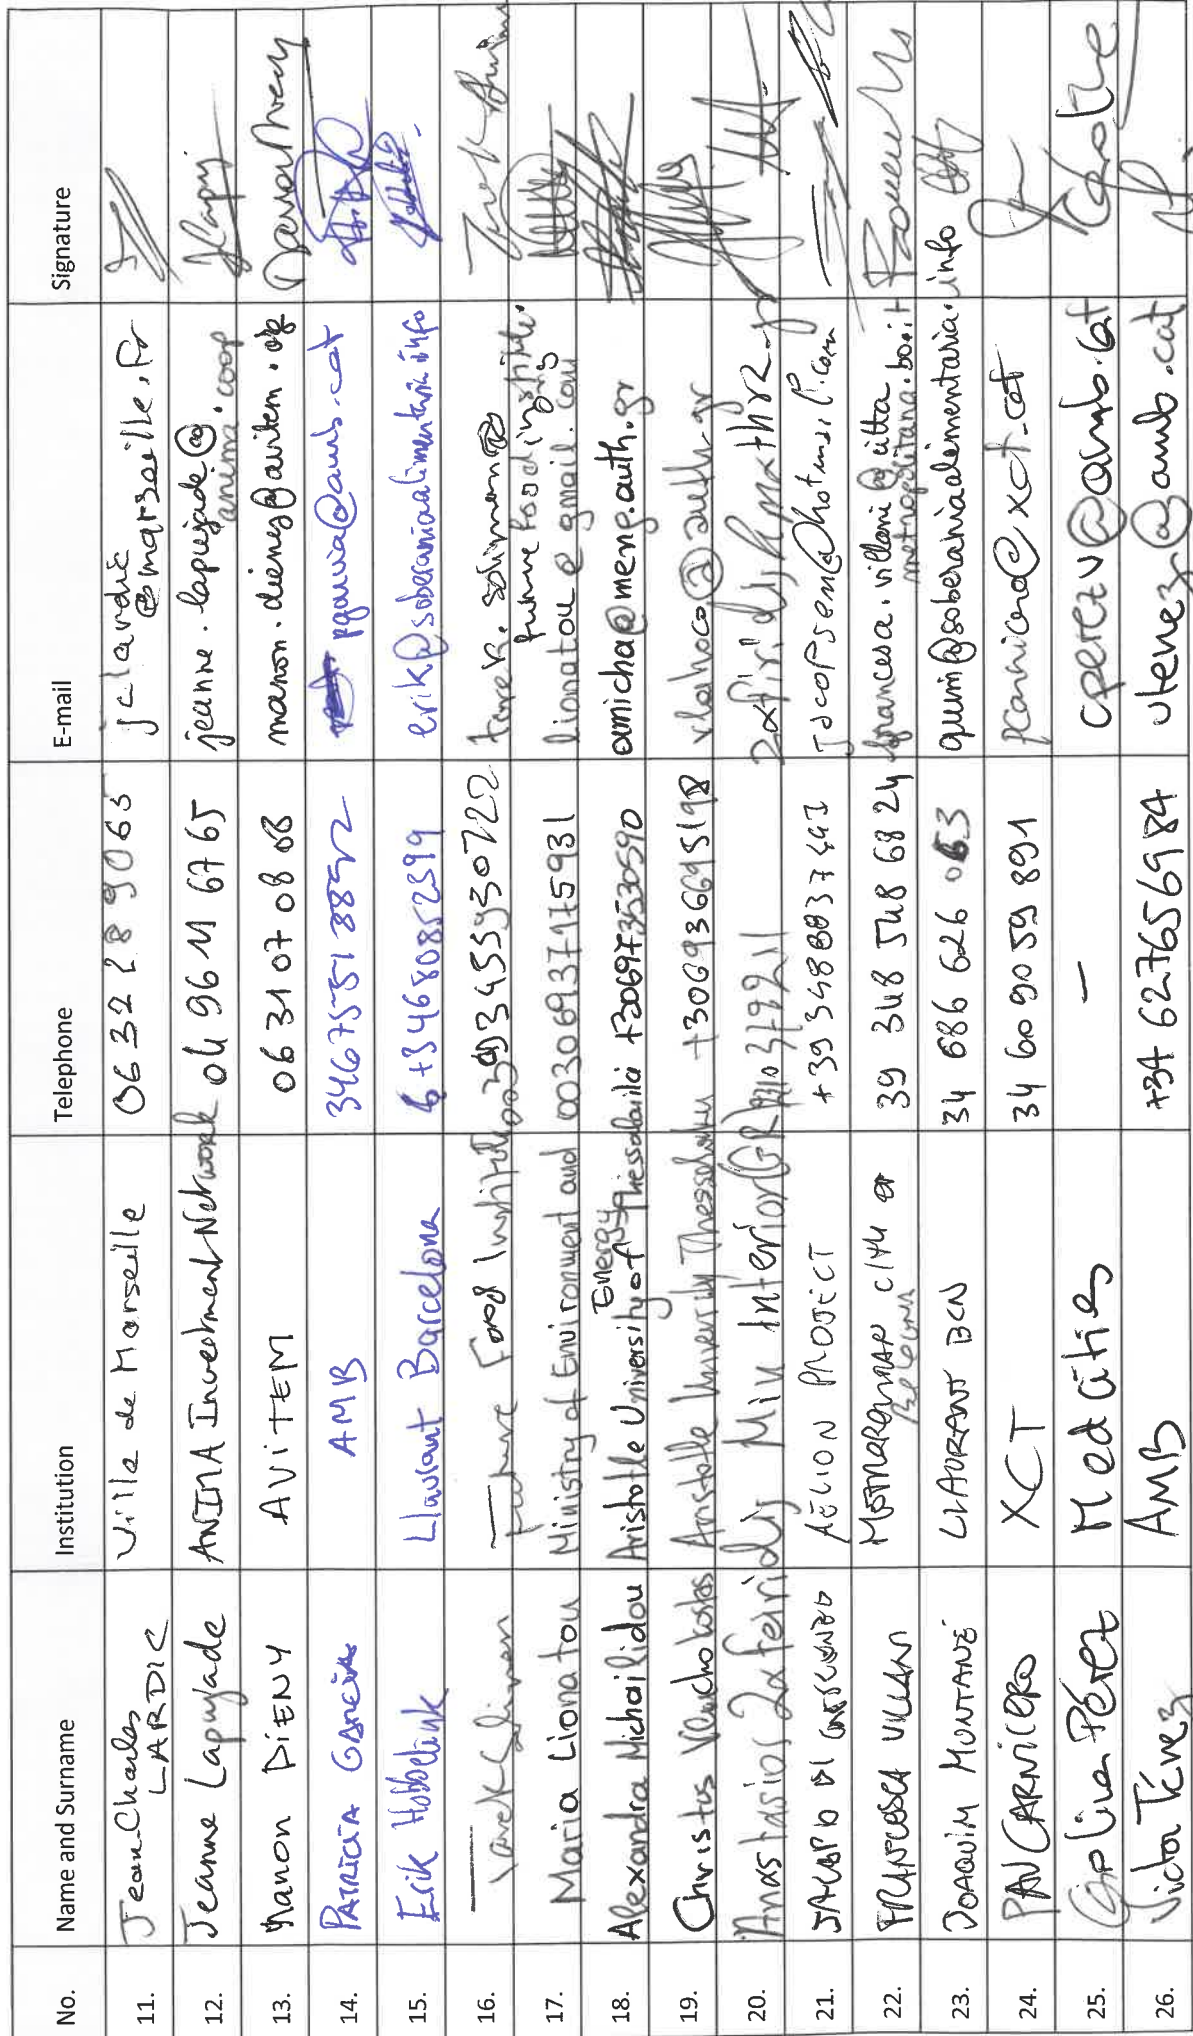 No. Name and Surname Institution Telephone E-mail Signature
11. Jean-Charles LARDIC Ville de Marseille 06 32 28 90 65 jclardic@marseille.fr
12. Jeanne Lapujade ANIMA Investment Network 04 96 11 67 65 jeanne.lapujade@anima.coop
13. Manon DIENY AVITEM 06 31 07 08 08 manon.dieny@avitem.org
14. PATRICIA GARCÍA AMB 34675513892 pgarcia@amb.cat
15. Erik Hobbelink Llaurant Barcelona +34680852599 erik@soberaniaalimentaria.info
16. Tarek Soliman Future Food Institute 00393455930722 tarek.soliman@futurefoodinstitute.org
17. Maria Lionatou Ministry of Environment and Energy 00306937175931 lionatou@gmail.com
18. Alexandra Michailidou Aristotle University of Thessaloniki +306973530590 amicha@meng.auth.gr
19. Christos Vlachokostas Aristotle University Thessaloniki +306936695198 vlahoco@auth.gr
20. Anastasios Zafeiridis Min Interior (GR)
21. JACOPO DI AËLION PROJECT +39 3488837441 jacopsem@hotmail.com
22. FRANCESCA VILLANI METROPOLITAN CITY OF BOLOGNA 39 348 548 6824 francesca.villani@cittametropolitana.bo.it
23. JOAQUIM MUNTANÉ LLAURANT BCN 34 686 626 063 quim@soberaniaalimentaria.info
24. PAU CARNICERO XCT 34 609059891 pcarnicero@xct.cat
25. Pérez Medcities – cperezv@amb.cat
26. Víctor Ténez AMB +34 627656984 vtenez@amb.cat